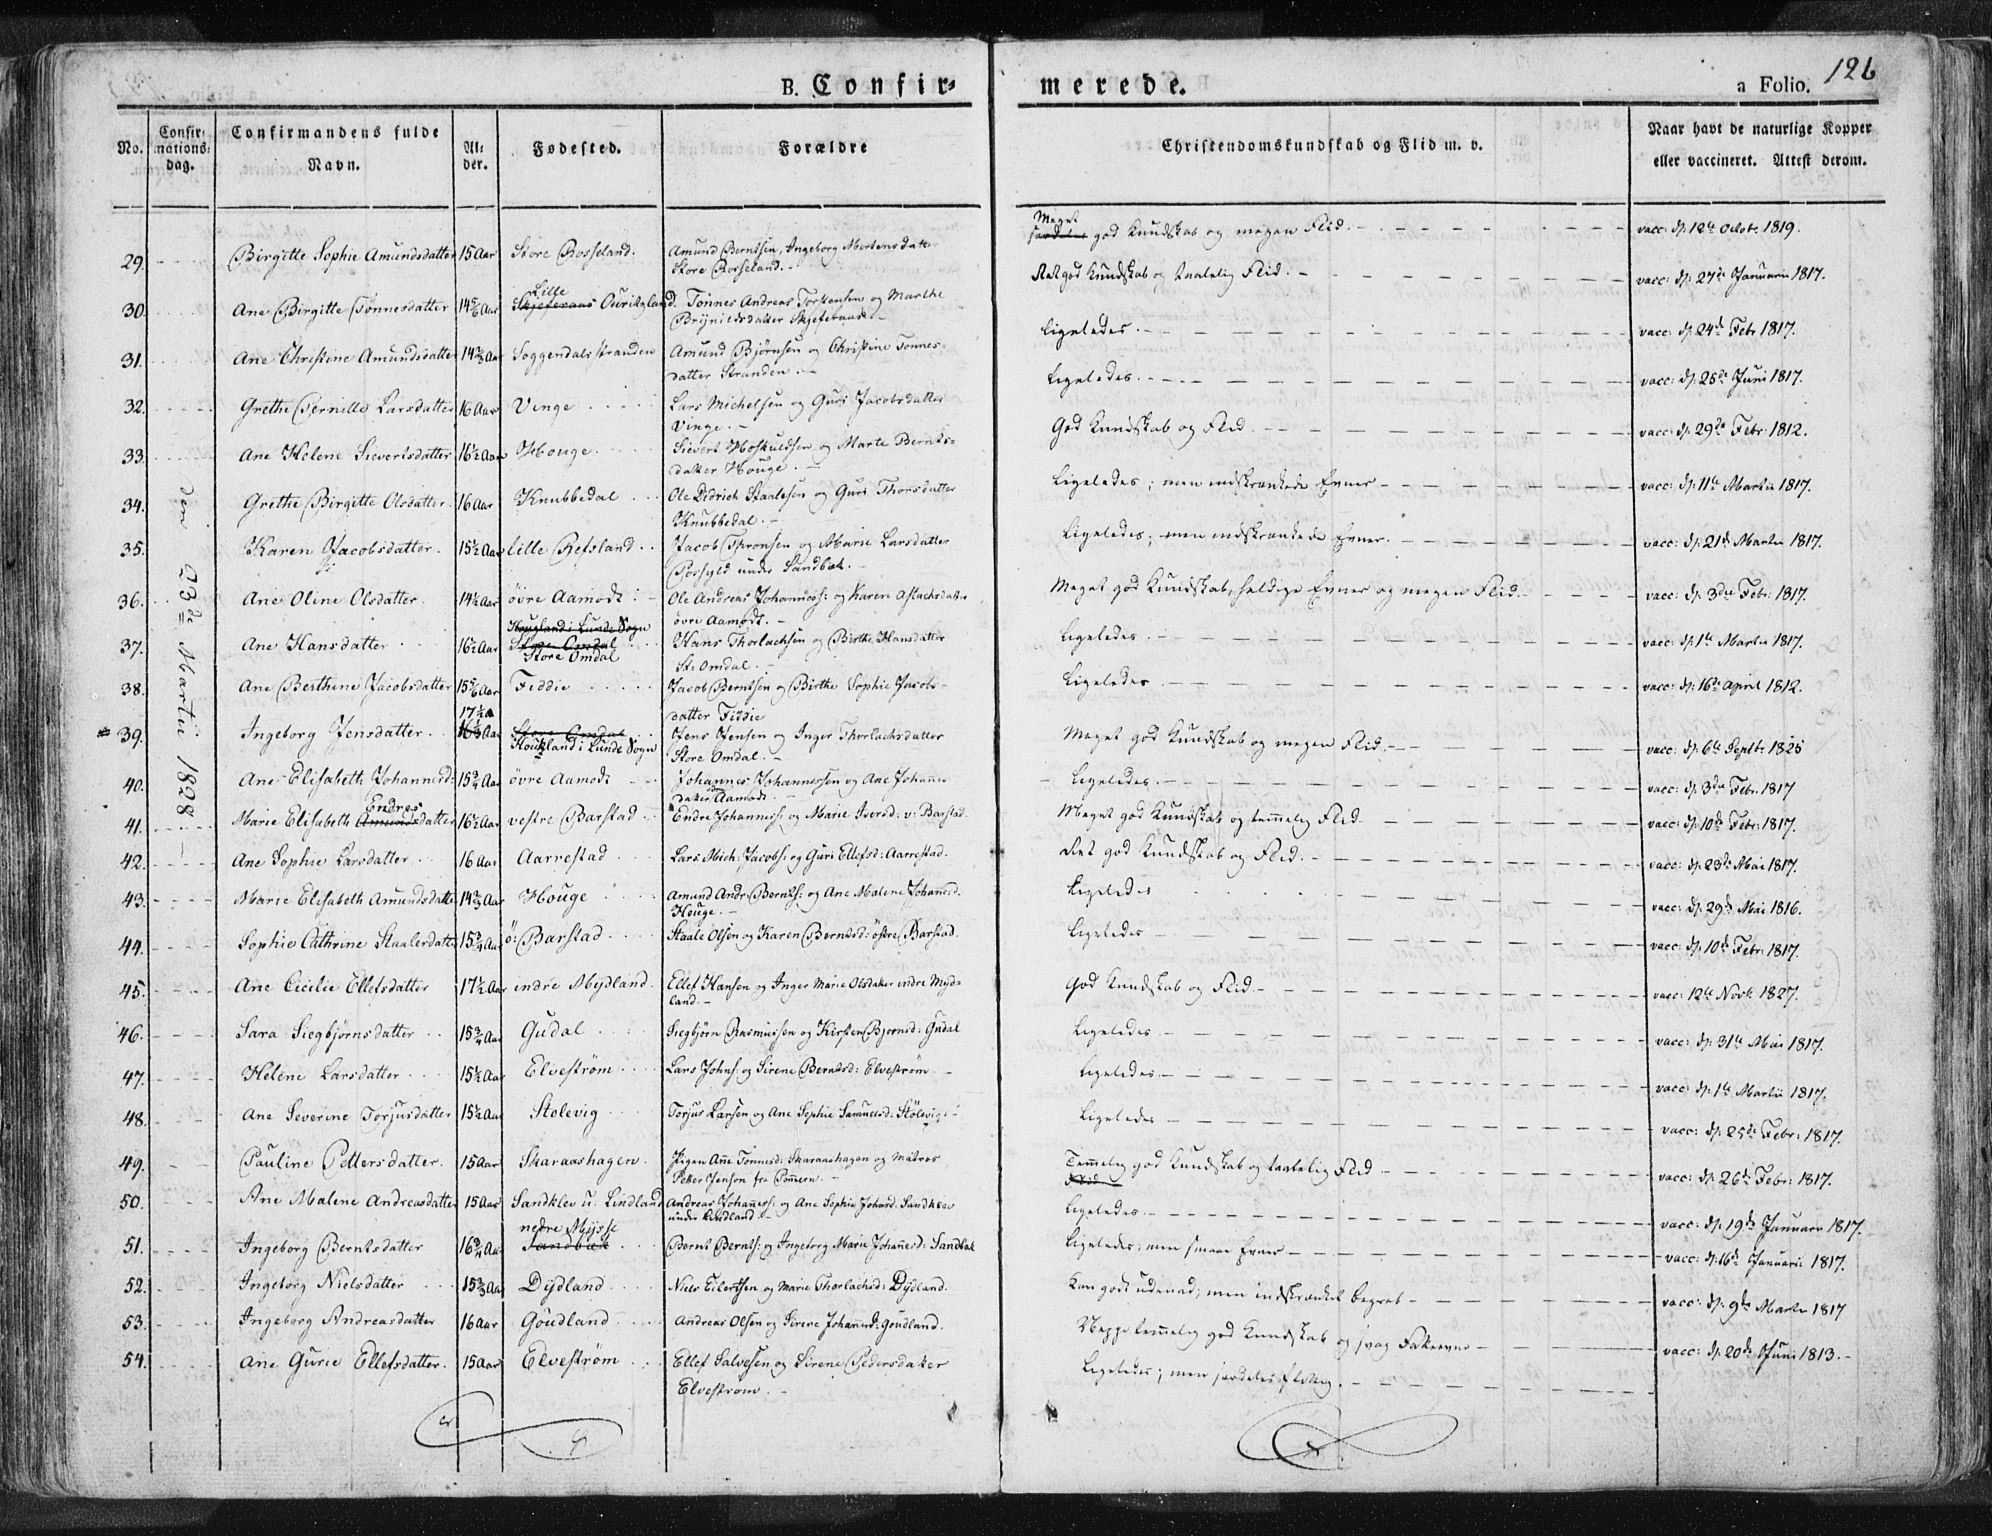 B. Confir-
merede.
a Folio. 126
No.
Confir-
mations-
dag.
Confirmandens fulde
Navn.
Al-
der.
Fødested.
Forældre
Christendomskundskab og Flid m. v.
Naar havt de naturlige Kopper
eller vaccineret. Attest derom.
den 23de Martii 1828.
29. Birgitte Sophie Amundsdatter 15 Aar Store Rosseland. Amund Berntsen, Ingeborg Mortensdatter
Store Rosseland.
Meget
god Kundskab og megen Flid. vacc: d. 12te Octobr. 1819.
30. Ane Birgitte Tønnesdatter 14 5/6 Aar Lille
Skjeferaas Ouritzland. Tønnes Andreas Torstensen og Marthe
Brynildsdatter Skjeferaas
Ret god Kundskab og taalelig Flid. vacc: d. 27de Januarii 1817.
31. Ane Christine Amundsdatter 14 2/3 Aar Soggendalsstranden Amund Bjørnsen og Christine Tønnes-
datter Stranden.
Ligeledes. vacc: d. 24de Febr 1817.
32. Grethe Pernille Larsdatter 16 Aar Vinge Lars Michelsen og Guri Jacobsdatter
Vinge.
Ligeledes. vacc: d. 25de Juni 1817.
33. Ane Helene Sivertsdatter 16 1/2 Aar Houge. Sivert Hoskuldsen og Marte Bernts-
datter Houge.
God Kundskab og Flid. vacc: d. 29de Febr: 1812.
34. Grethe Birgitte Olsdatter. 16 Aar Knubbedal Ole Didrich Staalesen og Guri Thorsdatter
Knubbedal.
Ligeledes; men indskrænkede Evner vacc: d. 11te Martii 1817.
35. Karen Jacobsdatter. 15 1/2 Aar lille Refsland Jacob Tronsen og Marie Larsdatter
under Sandbæk.
Ligeledes; men indskrænkede Evner. vacc: d. 21de Martii 1817.
36. Ane Oline Olsdatter. 14 1/2 Aar øvre Aamodt Ole Andreas Johanness: og Karen Aslachsdatter
øvre Aamodt.
Meget god Kundskab, heldige Evner og megen Flid. vacc: d. 3die Febr: 1817.
37. Ane Hansdatter 16 1/2 Aar Hougland i Lunde Sogn
Store Omdal
Store Omdal Hans Thorlachsen og Birthe Hansdatter
St: Omdal.
Ligeledes. vacc: d. 1te Martii 1817.
38. Ane Berthine Jacobsdatter 15 5/6 Aar Fiddie Jacob Berntsen og Birthe Sophie Jacobs-
datter Fiddie
Ligeledes vacc: d. 16de April 1812.
39. Ingeborg Jensdatter. 17 1/2 A
16 1/3 Aar Store Omdal
Houkland i Lunde Sogn Jens Jensen og Inger Thorlachsdatter
Store Omdal.
Meget god Kundskab og megen Flid. vacc: d. 6te Septbr. 1825
40. Ane Elisabeth Johannesd: 15 3/4 Aar øvre Aamodt Johannes Johannessen og Ane Johannes
datter Aamodt.
Ligeledes. vacc: d. 3die Febr. 1817
41. Marie Elisabeth Endres
Amundsdatter 16 1/2 Aar vestre Barstad Endre Johanness: og Marie Iversd: v: Barstad.
Meget god Kundskab og temmelig Flid vacc: d. 10de Febr: 1817.
42. Ane Sophie Larsdatter. 16 Aar Aarrestad Lars Mich: Jacobs: og Guri Ellefsd: Aarrestad.
Ret god Kundskab og Flid. vacc: d. 23de Mai 1817.
43. Marie Elisabeth Amundsdatter 14 2/3 Aar Houge Amund Andr: Bernts: og Ane Malene Johannesd.
Houge.
Ligeledes vacc: d. 29de Mai 1816.
44. Sophie Cathrine Staalesdatter 15 3/4 Aar ø: Barstad Staale Olsen og Karen Berntsd: østre Barstad
Ligeledes vacc: d. 10de Febr: 1817.
45. Ane Cicilie Ellefsdatter 17 1/2 Aar indre Mydland. Ellef Hansen og Inger Marie Olsdatter indre Myd-
land.
God Kundskab og Flid. vacc: 12te Novbr. 1827.
46. Sara Siegbjørnsdatter 15 3/4 Aar Gudal Siegbjørn Rasmussen og Kirsten Bjørnsd: Gudal
Ligeledes vacc: d. 31te Mai 1817.
47. Helene Larsdatter 15 1/2 Aar Elvestrøm Lars Johns: og Sirene Berntsd: Elvestrøm
Ligeledes. vacc: d. 1te Martii 1817.
48. Ane Severine Torjusdatter 15 1/2 Aar Stolevig Torjus Larsen og Ane Sophie Samuelsd: Stølevig
Ligeledes vacc: d. 25de Febr: 1817.
49. Pauline Pettersdatter. 15 Aar Skaraashagen. Pigen Ane Tønnesd: Skaraashagen og Matros
Petter Jenson fra Pomern.
Temmelig god Kundskab og taalelig Flid
Flid vacc: d. 26de Febr: 1817.
50. Ane Malene Andreasdatter 15 Aar Sandklev u. Lindland Andreas Johanness: og Ane Sophie Johansd: Sandklev
under Lindland.
Ligeledes. vacc: d. 19de Januari 1817.
51. Ingeborg Berntsdatter 16 3/4 Aar nedre Mysse
Sandbæk Bernt Bernts: og Ingeborg Marie Johannesd: Sandbæk
Ligeledes; men smaae Evner vacc: d. 16de Januarii 1817.
52. Ingeborg Nielsdatter 15 2/3 Aar Dydland Niels Eilertsen og Marie Thorlachsd: Dydland.
Kan godt udenad; men indskrænket Begreb vacc: d. 9de Martii 1817
53. Ingeborg Andreasdatter 16 Aar Goudland Andreas Olsen og Sirene Johannesd: Goudland.
Neppe temmelig god Kundskab og svag vacc: d. 20de Juni 1813.
54. Ane Gurie Ellefsdatter. 15 Aar Elvestrøm Ellef Salvesen og Sirene Pedersdatter
Elvestrøm.
Ligeledes; men